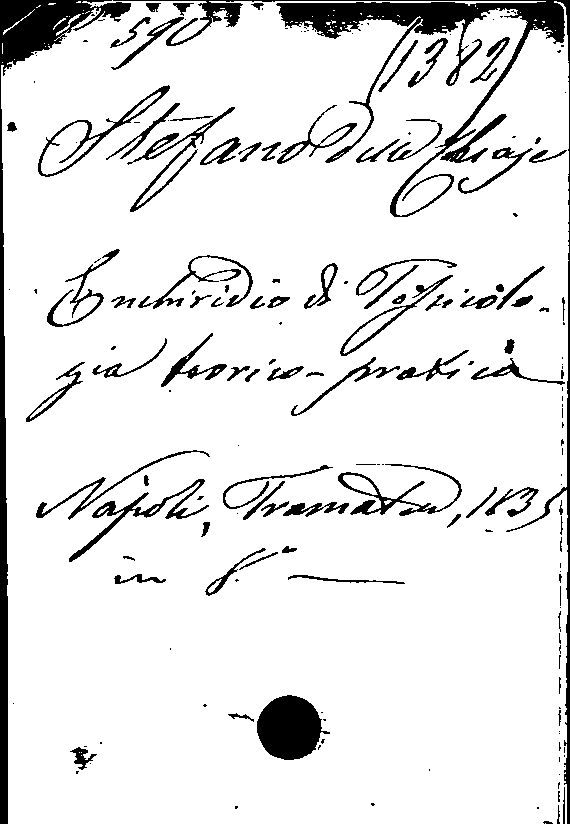 590
(1382)
Stefano delle Chiaje
Enchiridio di Tossicolo-
gia teorico-pratica
Napoli, Tramater, 1835
in 8.° —